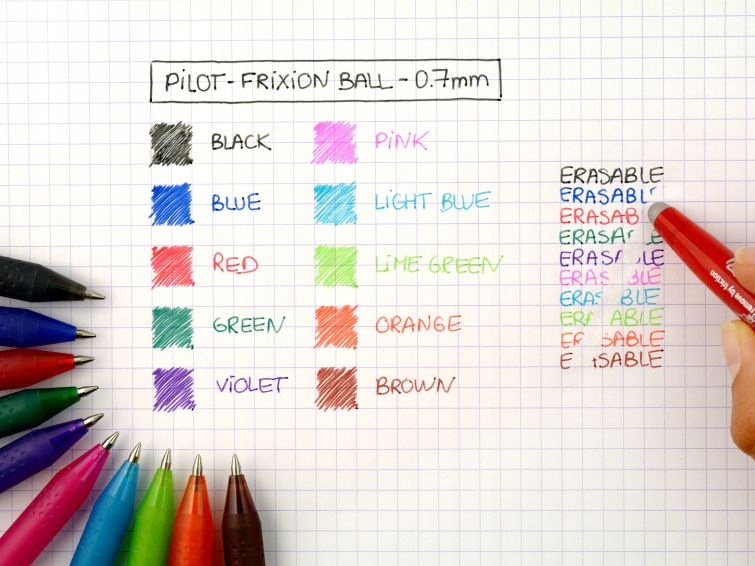 PiLOT-FRiXiON BALL-0.7mm
BLACK
BLUE
RED
GREEN
ViOLET
PiNK
LiGHT BLUE
LiME GREEN
ORANGE
BROWN
ERASABLE
ERASABL
ERASAB
ERASA LE
ERASABLE
ERAS BLE
ERAS BLE
ER ABLE
E SABLE
E SABLE
remove by friction